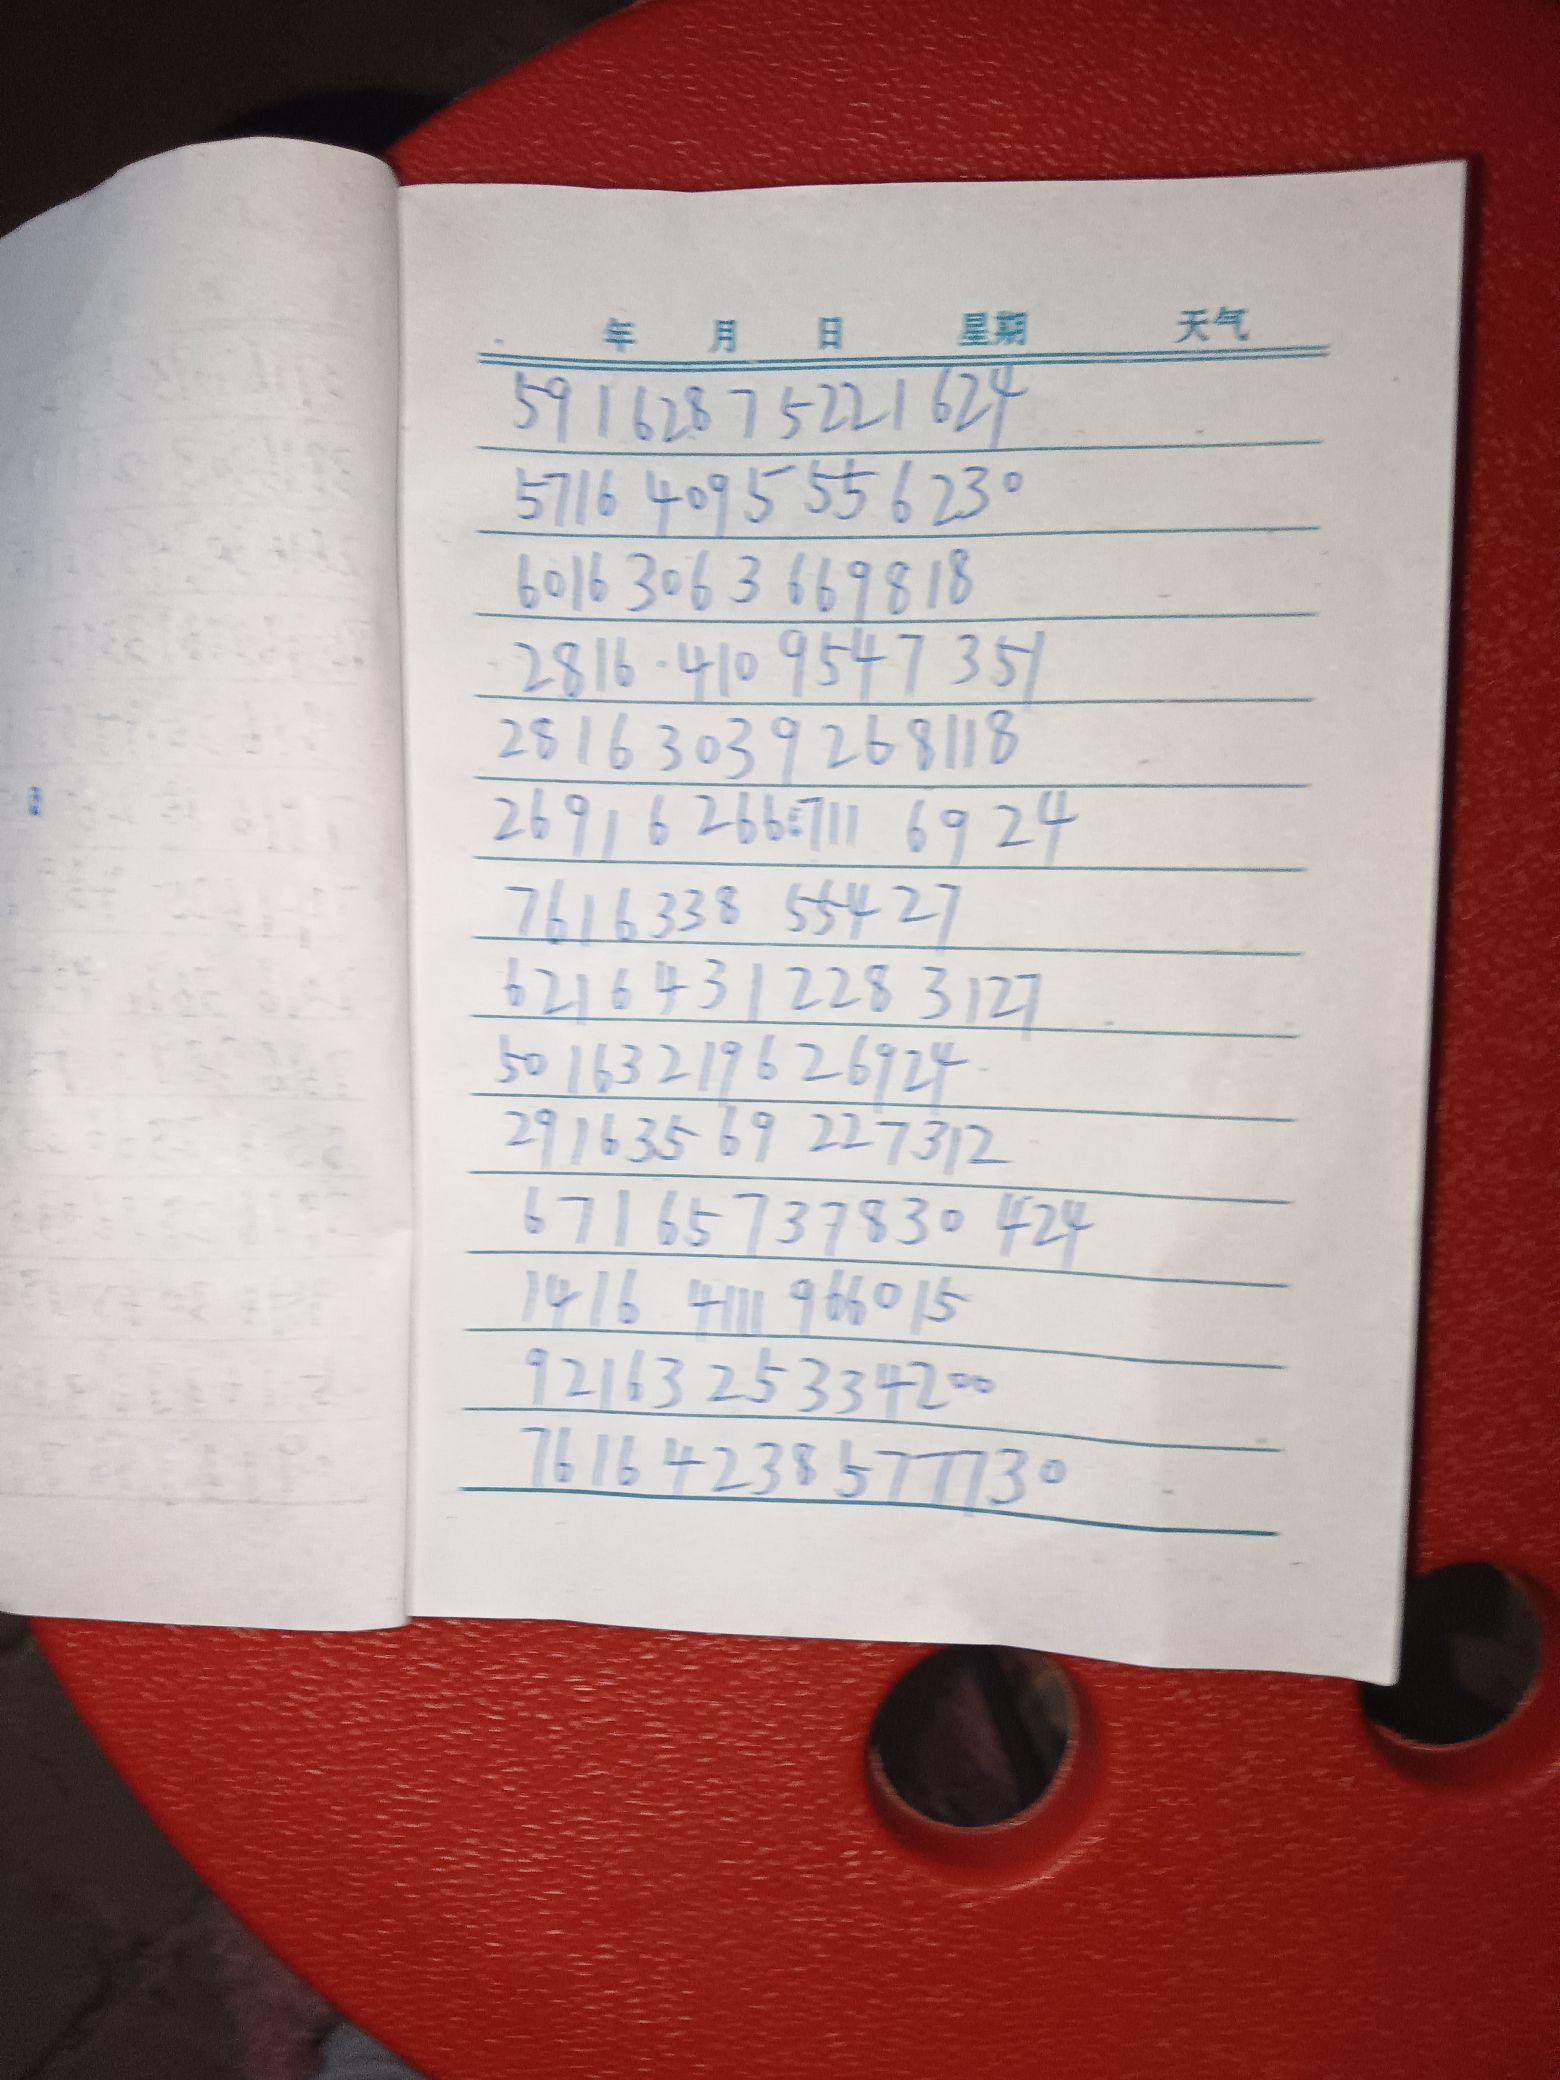 年 月 日 星期 天气
5916287 5221 624
5716 4095 556230
60163063 669818
2816 · 410 9547 351
28163039268118
26916 266 7111 6924
7616338 55427
621643122831 27
501632196 26924
29163569 227312
67165737830 424
1416 4111 966015
921632533 4200
76164238577730